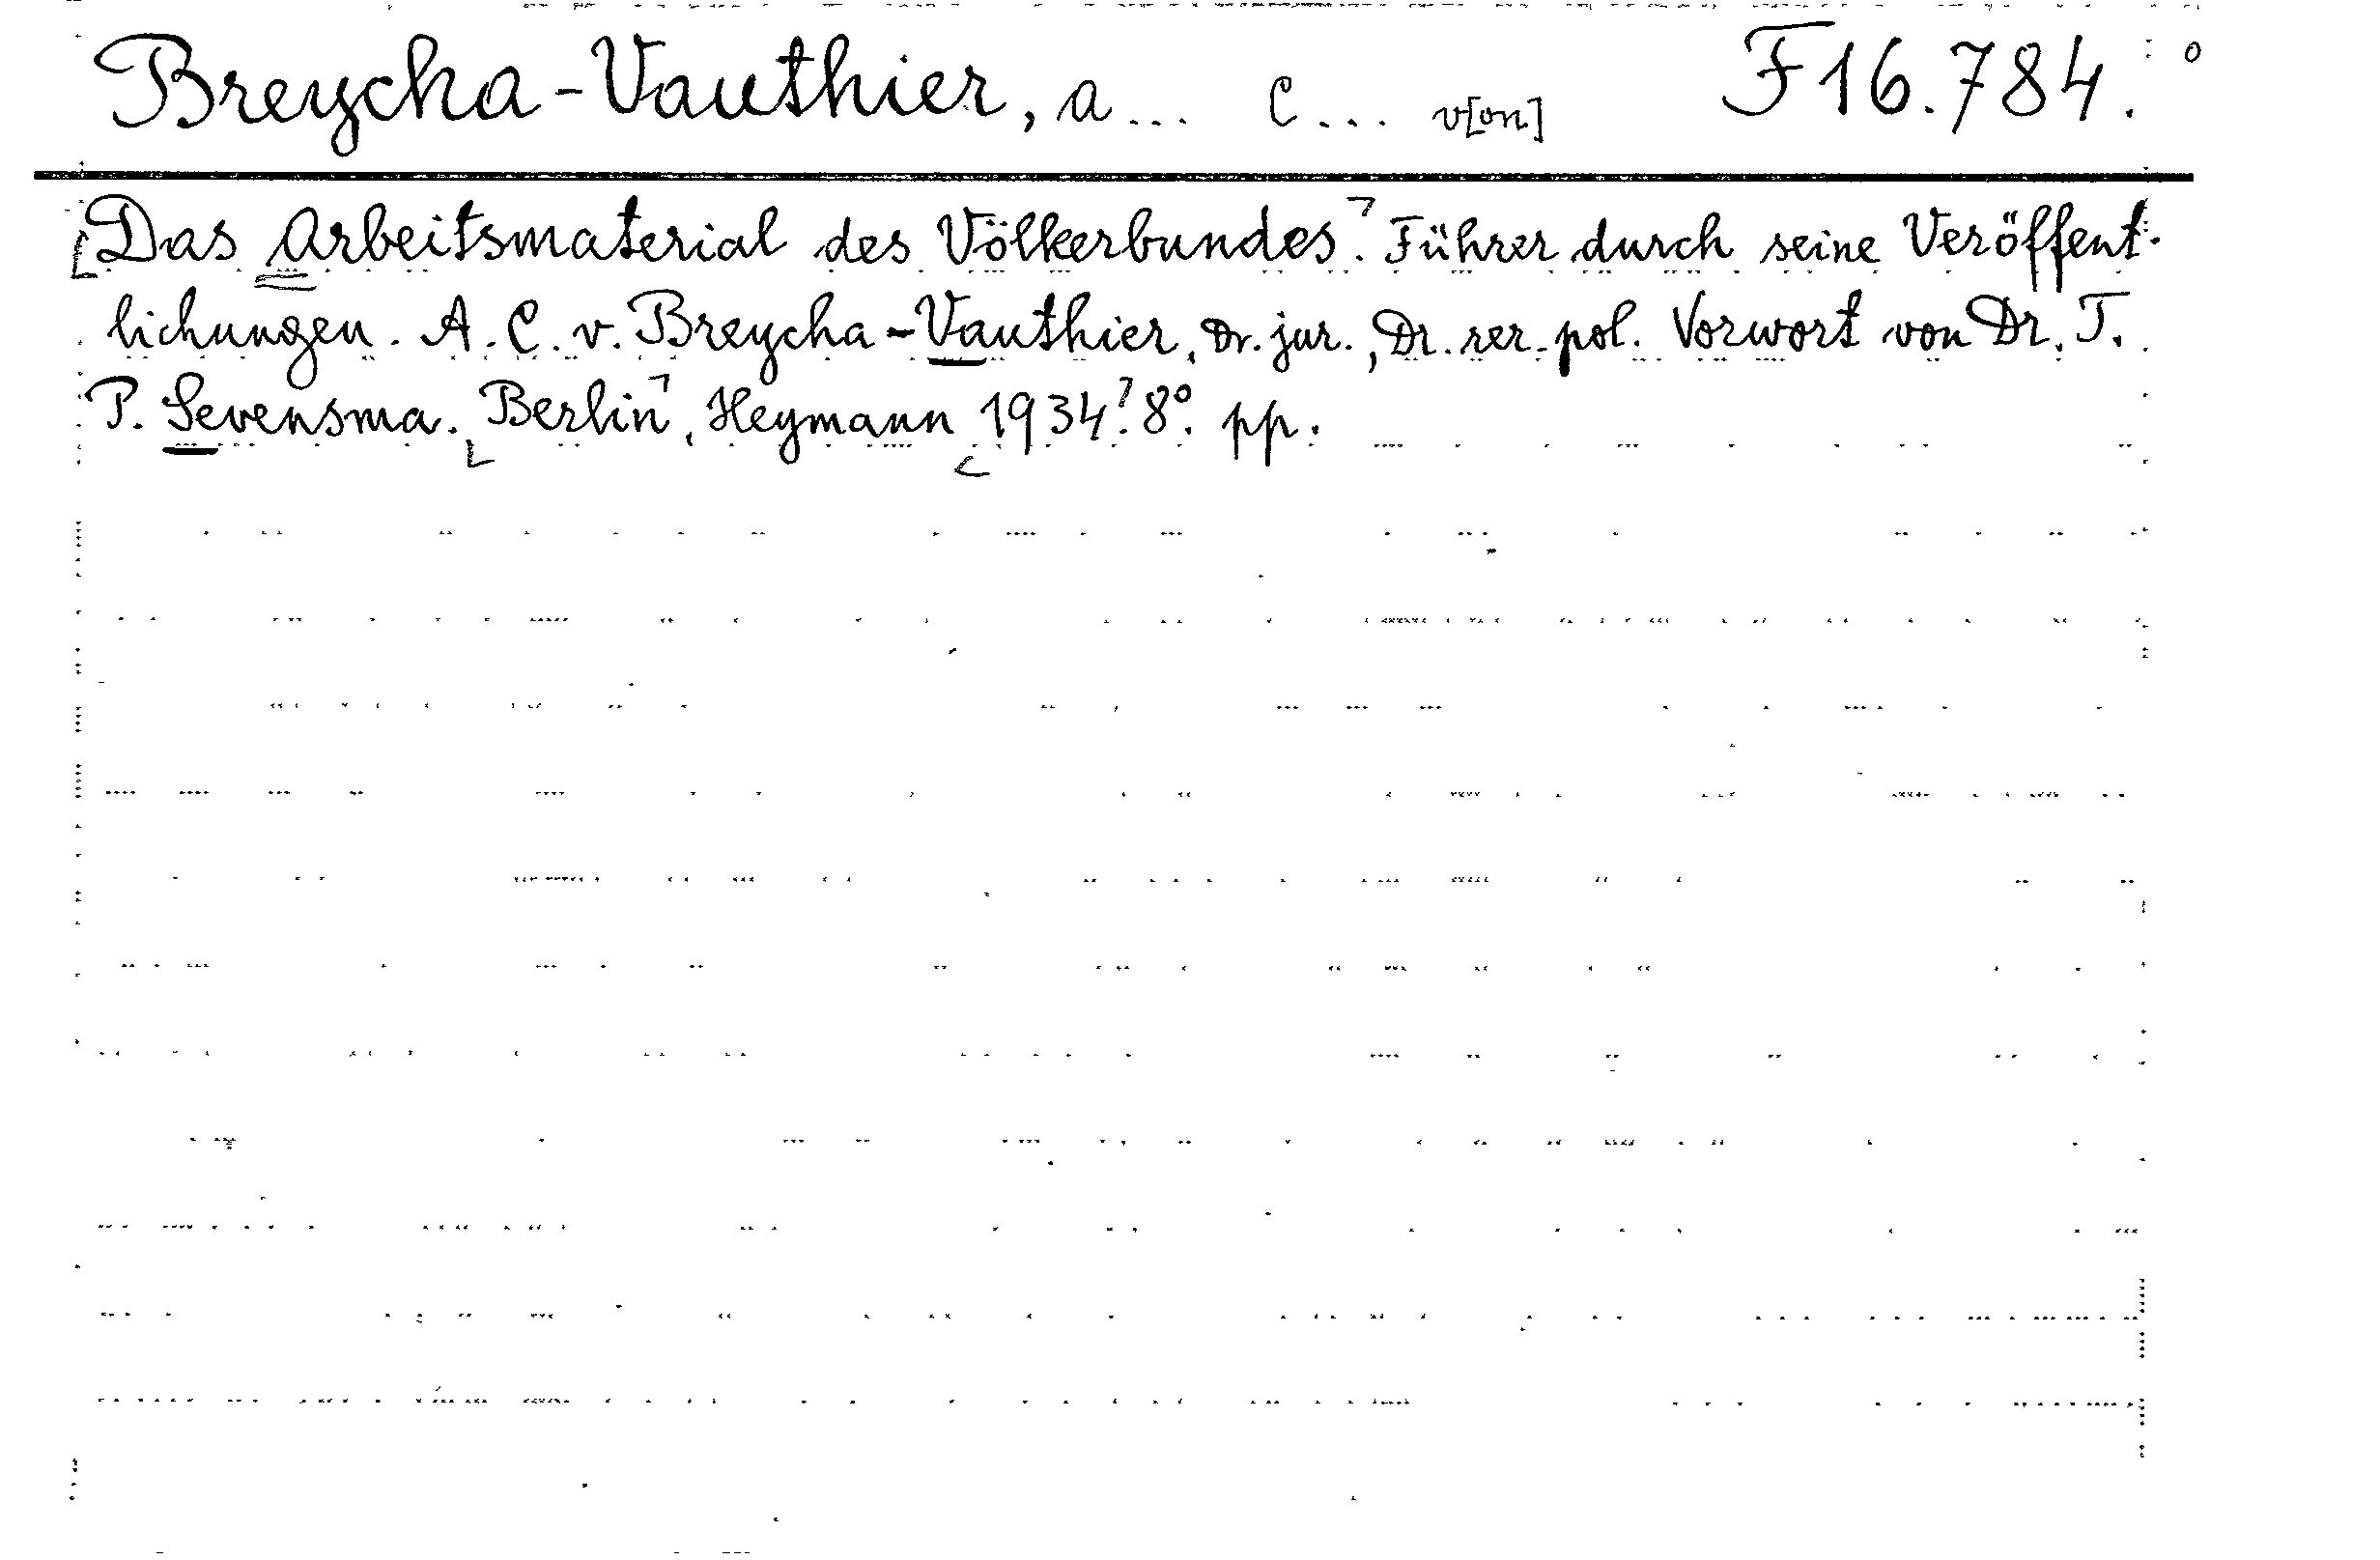 Breycha-Vauthier, A... C... v[on] F 16.784.
Das Arbeitsmaterial des Völkerbundes. Führer durch seine Veröffent-
lichungen. A. C. v. Breycha-Vauthier, Dr. jur., Dr. rer. pol. Vorwort von Dr. T.
P. Sevensma. Berlin, Heymann 1934. 8°. pp.